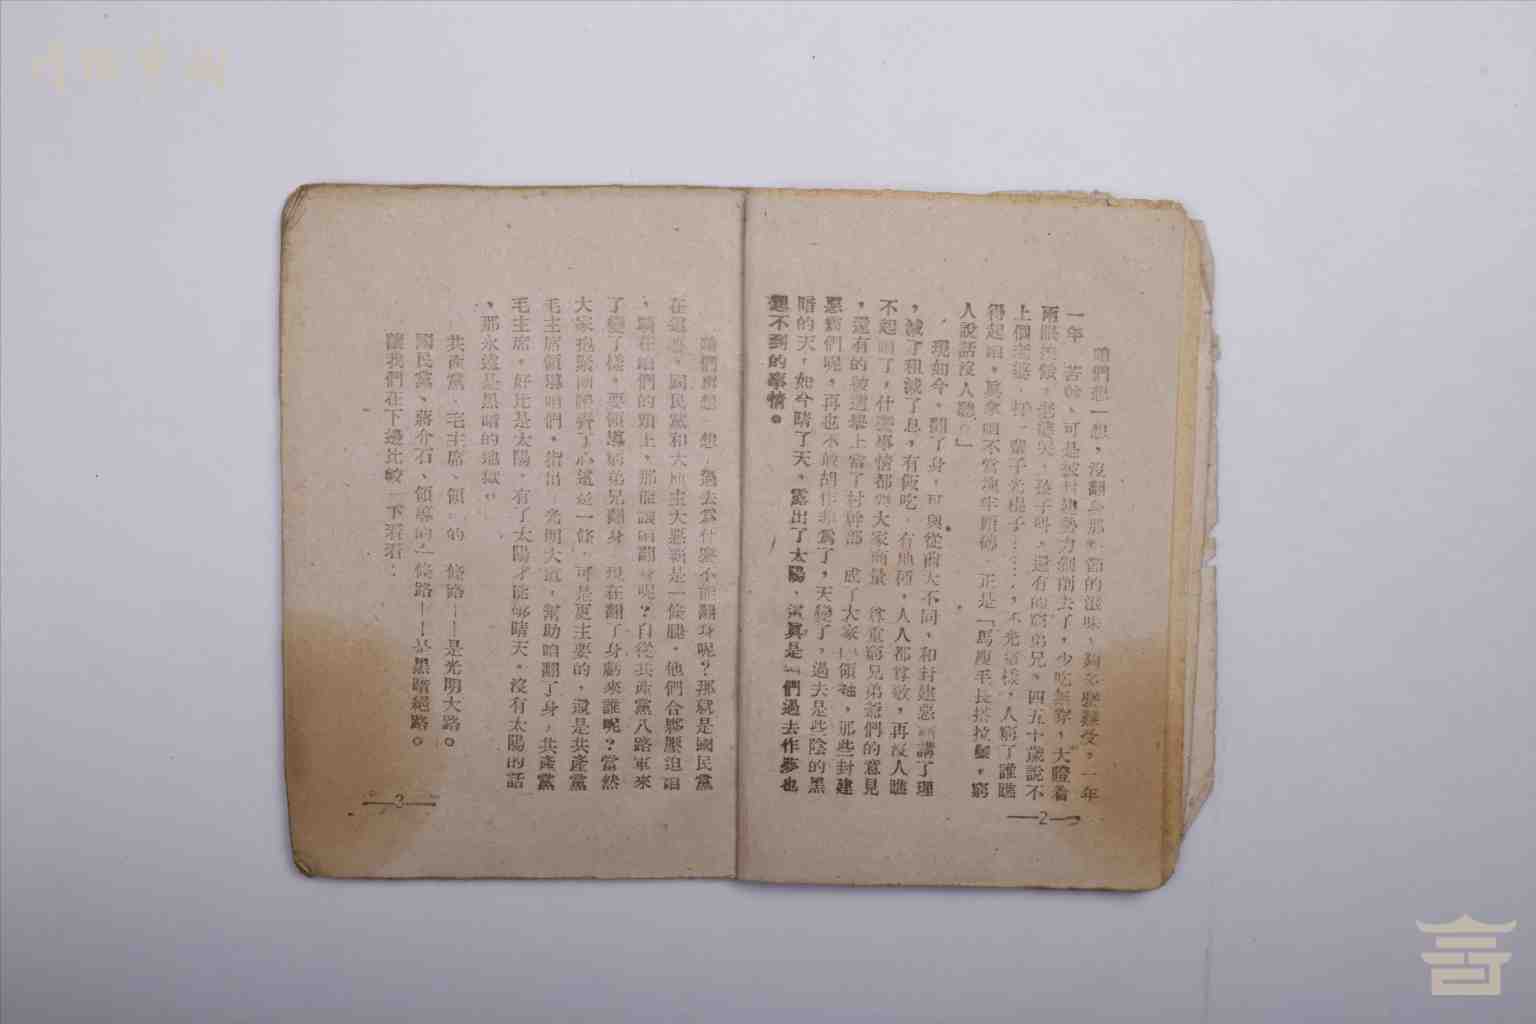 咱們想一想，沒翻身那節的滋味，夠多麼難受，一年
一年苦幹、可是被封建勢力剝削去了，少吃無穿，大瞪着
兩眼挨餓，老婆哭、孩子叫，還有的窮弟兄、四五十歲說不
上個老婆，打一輩子光棍子……，不光這樣，人窮了誰瞧
得起咱，真拿咱不當塊牢頭磚，正是「馬瘦毛長搭拉鬃，窮
人說話沒人聽。」
現如今，翻了身，可與從前大不同，和封建惡霸講了理
，減了租減了息，有飯吃，有地種，人人都尊敬，再沒人瞧
不起咱了，什麼事情都與大家商量，尊重窮兄弟爺們的意見
，還有的被選舉上當了村幹部，成了大家的領袖，那些封建
惡霸們呢，再也不敢胡作非為了，天變了，過去是些陰的黑
暗的天，如今晴了天，露出了太陽、當真是咱們過去作夢也
想不到的事情。
—2—
咱們再想一想，過去為什麼不能翻身呢？那就是國民黨
在這裏，國民黨和大地主大惡霸是一條腿，他們合夥壓迫咱
，騎在咱們的頭上，那能讓咱翻身呢？自從共產黨八路軍來
了變了樣，要領導窮弟兄翻身，現在翻了身虧來誰呢？當然
大家抱緊團體齊了心這是一條，可是更主要的，還是共產黨
毛主席領導咱們，指出光明大道，幫助咱翻了身，共產黨
毛主席，好比是太陽，有了太陽才能够晴天，沒有太陽的話
，那永遠是黑暗的地獄。
共產黨、毛主席、領的一條路——是光明大路。
國民黨、蔣介石、領導的一條路——是黑暗絕路。
讓我們在下邊比較一下看看：
—3—